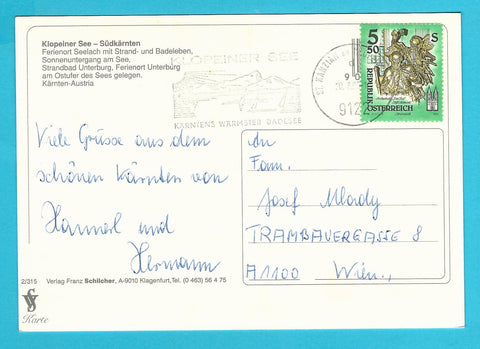 Klopeiner See – Südkärnten
Ferienort Seelach mit Strand- und Badeleben,
Sonnenuntergang am See,
Strandbad Unterburg, Ferienort Unterburg
am Ostufer des Sees gelegen.
Kärnten-Austria
KLOPEINER SEE
KÄRNTENS WÄRMSTER BADESEE
ST. KANZIAN
912
5 50 S
REPUBLIK
ÖSTERREICH
Viele Grüsse aus dem
schönen Kärnten von
Hannerl und
Hermann
An
Fam.
Josef Mlady
TRAMBAUERGASSE 8
A1100 Wien,
2/315 Verlag Franz Schilcher, A-9010 Klagenfurt, Tel. (0 463) 56 4 75
Karte